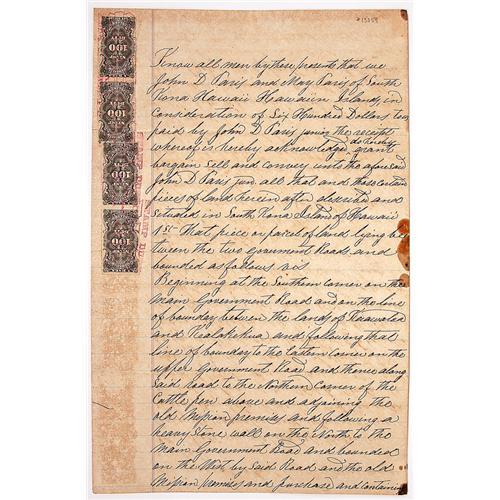 #15059
Know all men by these presents that we
John D Paris and May Paris of South
Kona Hawaii Hawaiian Islands, in
Consideration of Six Hundred Dollars to us
paid by John D Paris junr in the receipt
whereof is hereby acknowledged do hereby grant
bargain Sell and Convey unto the aforesaid
John D Paris jun all that and those certain
pieces of land herein after described and
Situated in South Kona Island of Hawaii
1st That piece or parcel of land lying be
tween the two government Roads and
bounded as follows vis
Beginning at the Southern corner on the
Main Government Road and on the line
of boundary between the lands of Kaawaloa
and Kealakekua and following that
line of boundary to the Eastern corner on the
upper Government Road and thence along
Said Road to the Northern Corner of the
Cattle pen above and adjoining the
old Mission premises and following a
heavy Stone wall on the North to the
Main Government Road and bounded
on the West by Said Road and the old
Mission premises and purchase and containing
100
100
100
100